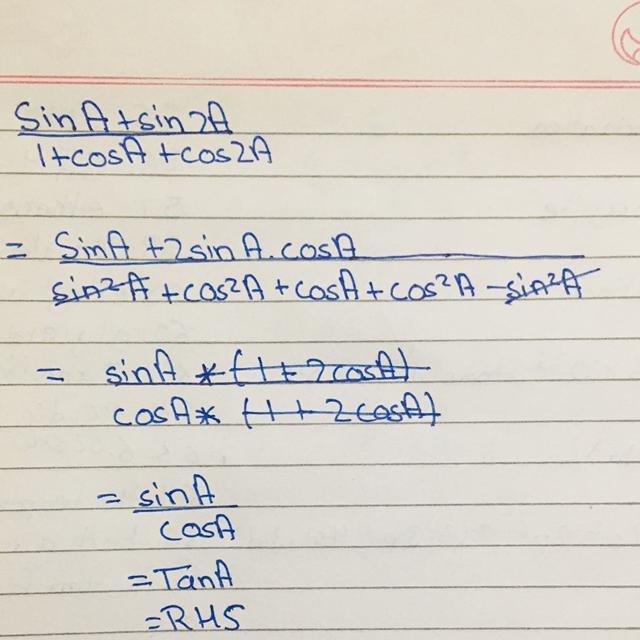 SinA+sin2A
1+cosA+cos2A
= SinA+2sinA.cosA
sin²A+cos²A+cosA+cos²A-sin²A
= sinA*(1+2cosA)
cosA*(1+2cosA)
= sinA
cosA
=TanA
=RHS